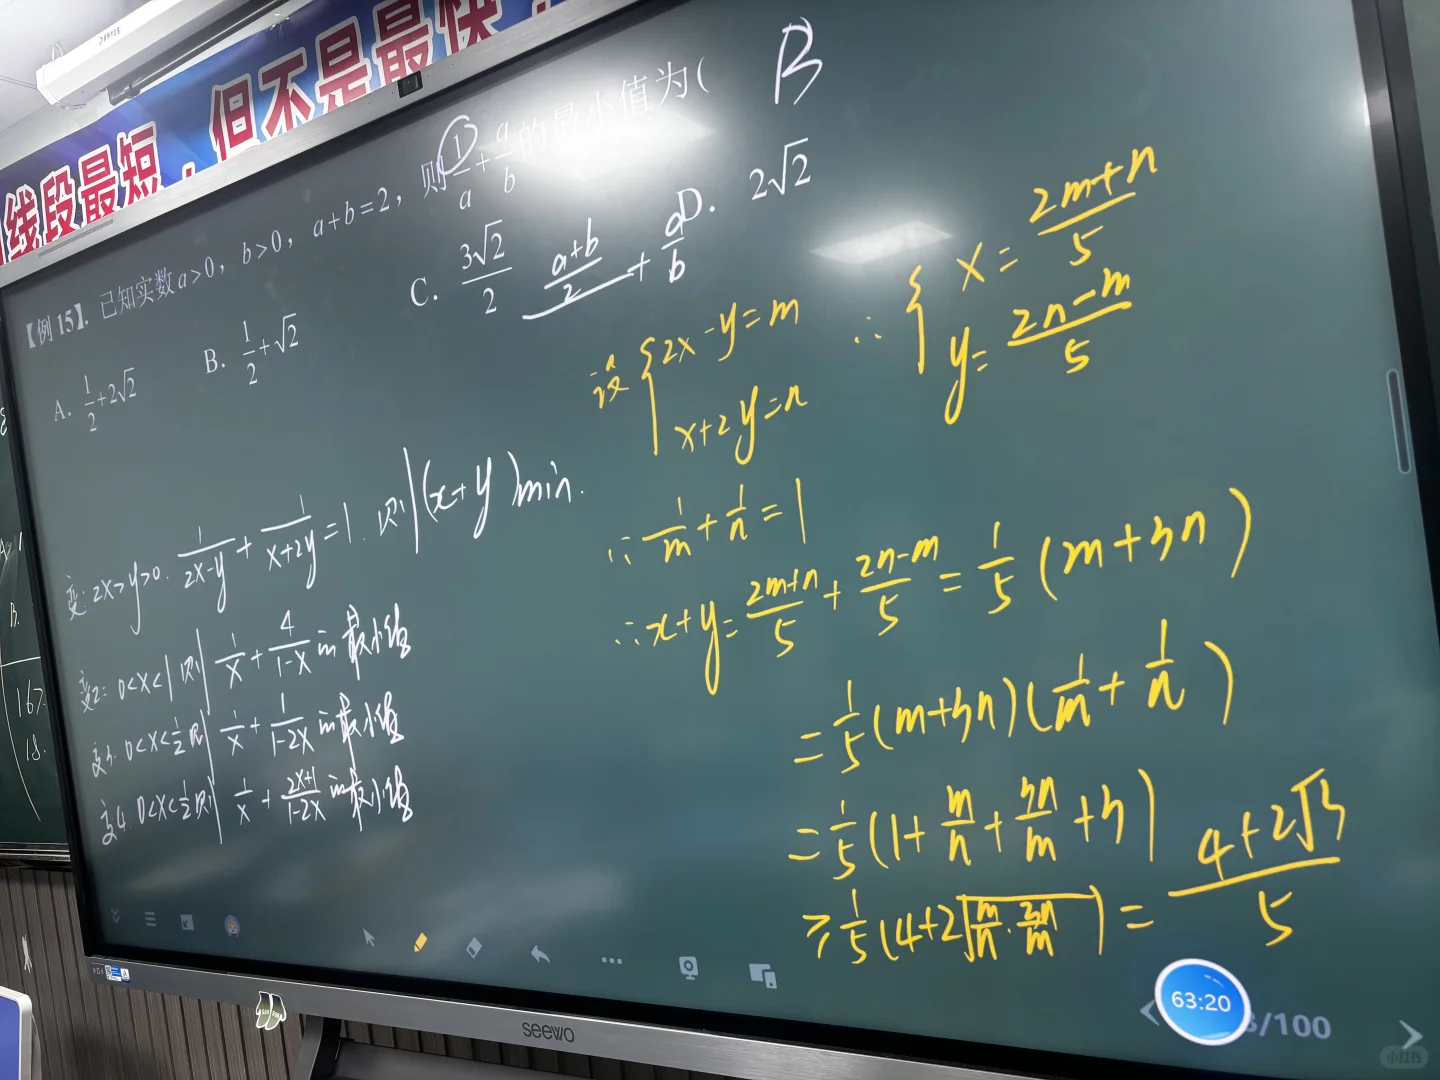 线段最短，但不是最快
【例 15】. 已知实数 a>0, b>0, a+b=2, 则 1/a + a/b 的最小值为(
B
A. 1/2+2√2
B. 1/2+√2
C. 3√2/2
D. 2√2
(a+b)/2 + a/b
变: 2x>y>0. 1/(2x-y) + 1/(x+2y) = 1. 则 (x+y)min.
变2: 0<x<1 则 1/x + 4/(1-x) 的最小值
变3. 0<x<1/2 则 1/x + 1/(1-2x) 的最小值
变4. 0<x<1/2 则 1/x + (2x+1)/(1-2x) 的最小值
设 { 2x-y=m
x+2y=n
∴ { x= (2m+n)/5
y= (2n-m)/5
∵ 1/m + 1/n = 1
∴ x+y= (2m+n)/5 + (2n-m)/5 = 1/5 (m+3n)
= 1/5 (m+3n)(1/m + 1/n)
= 1/5 (1+ m/n + 3n/m +3)
≥ 1/5 (4+2√(m/n · 3n/m)) = (4+2√3)/5
B.
167.
18.
seewo
63:20
/100
小红书